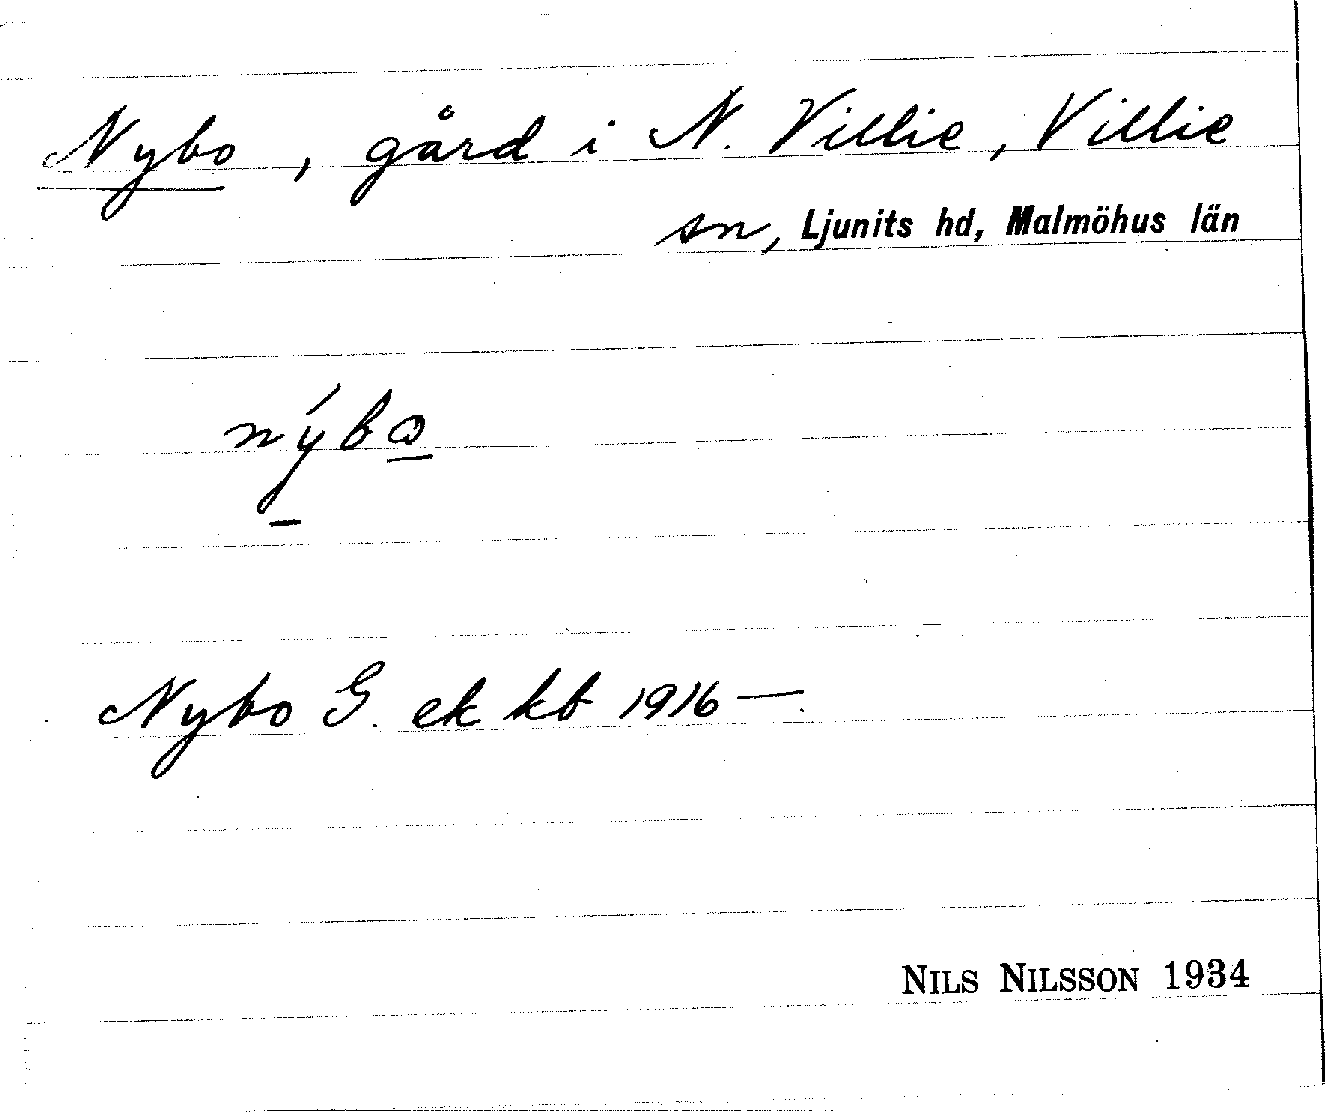 Nybo, gård i N. Villie, Villie
sn, Ljunits hd, Malmöhus län
nýbo
Nybo G. ek kb 1916—
NILS NILSSON 1934